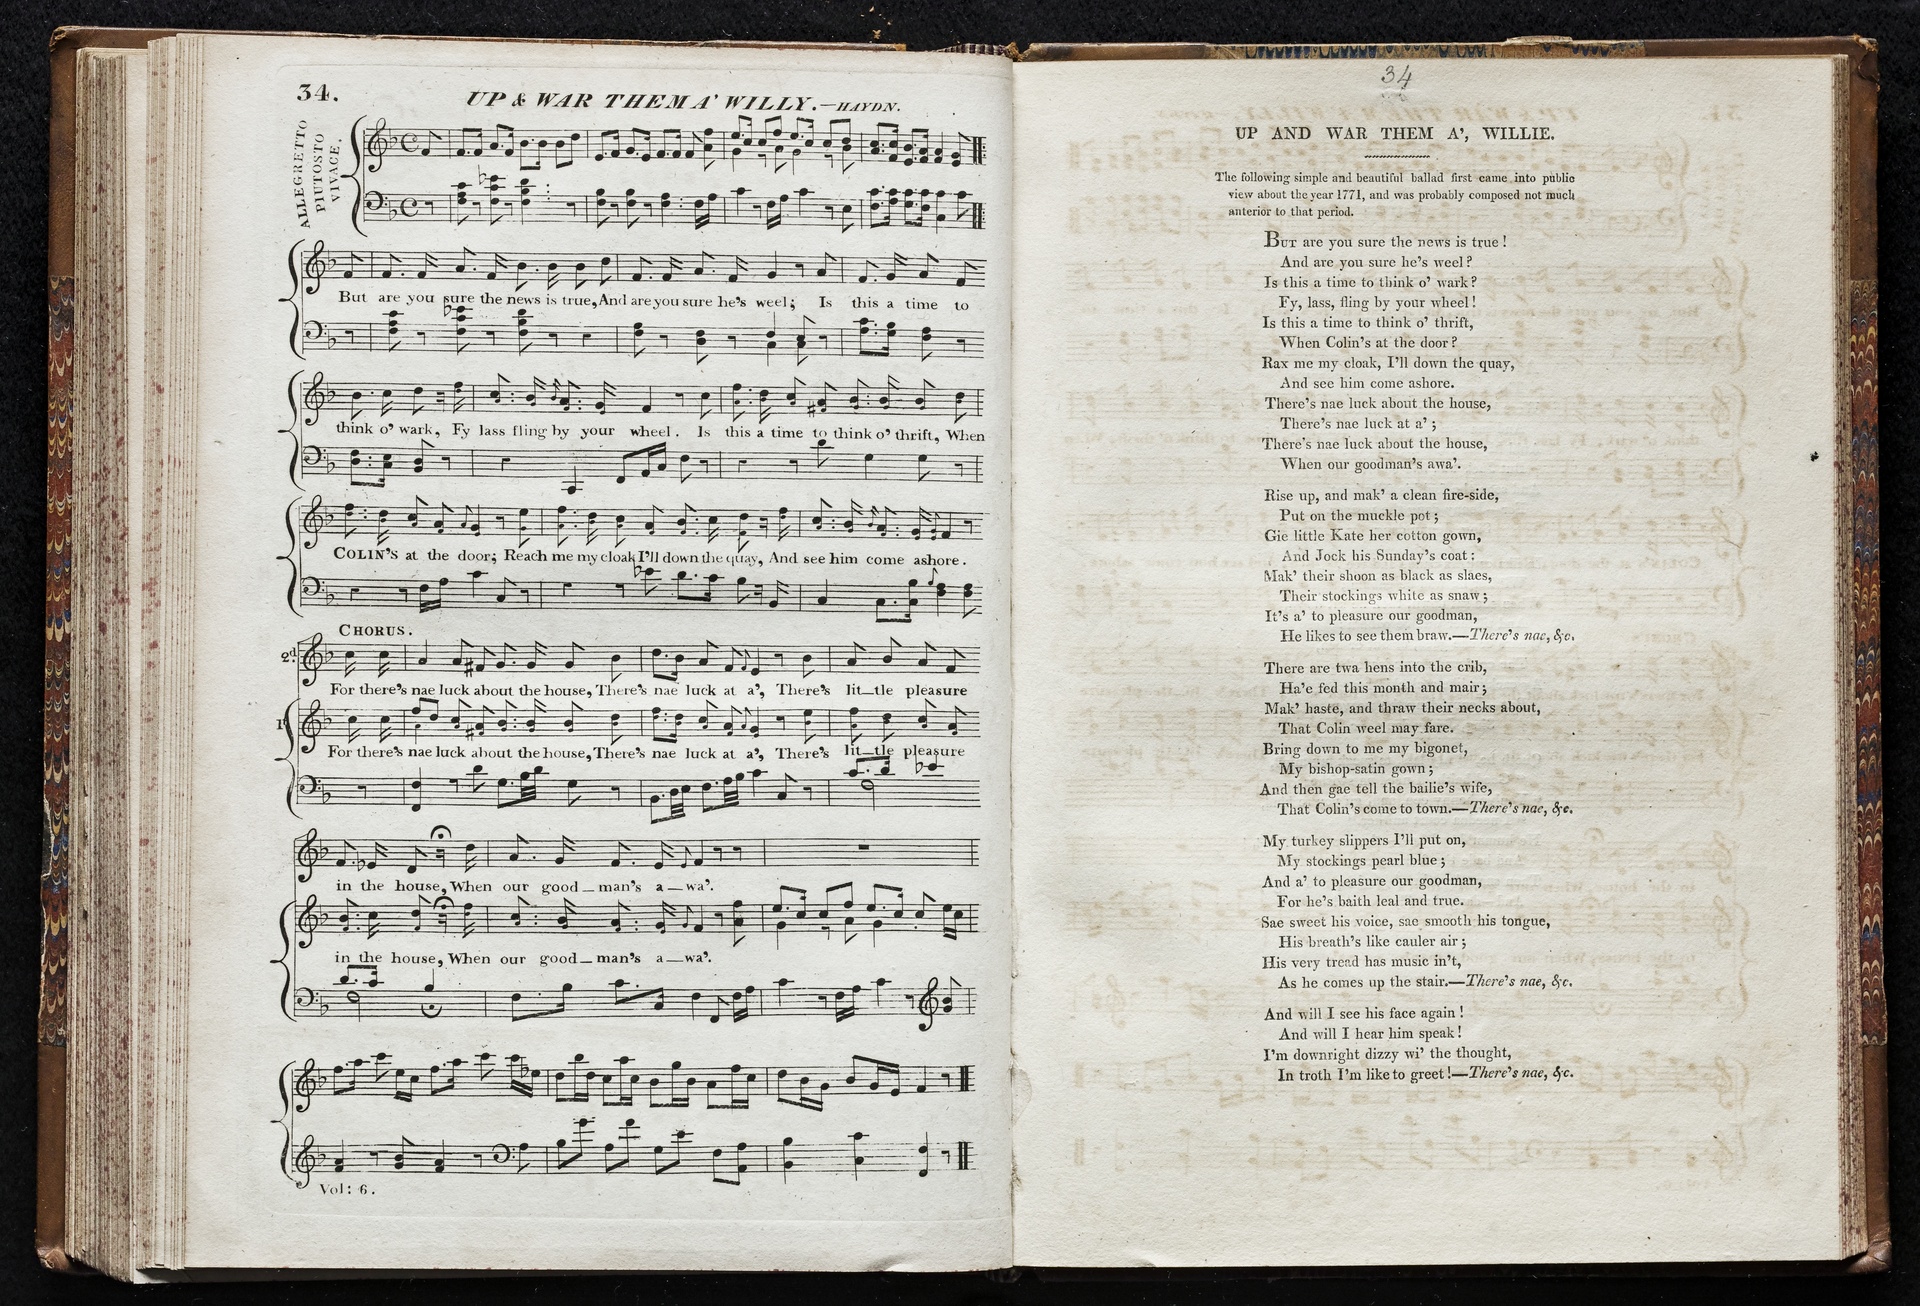 34.
UP & WAR THEM A' WILLY.—HAYDN.
ALLEGRETTO
PIUTOSTO
VIVACE.
But are you sure the news is true, And are you sure he's weel; Is this a time to
think o' wark, Fy lass fling by your wheel. Is this a time to think o' thrift, When
COLIN'S at the door; Reach me my cloak I'll down the quay, And see him come ashore.
CHORUS.
2d
For there's nae luck about the house, There's nae luck at a', There's lit—tle pleasure
For there's nae luck about the house, There's nae luck at a', There's lit—tle pleasure
in the house, When our good—man's a—wa'.
in the house, When our good—man's a—wa'.
Vol: 6.
34
UP AND WAR THEM A', WILLIE.
The following simple and beautiful ballad first came into public
view about the year 1771, and was probably composed not much
anterior to that period.
BUT are you sure the news is true!
And are you sure he's weel?
Is this a time to think o' wark?
Fy, lass, fling by your wheel!
Is this a time to think o' thrift,
When Colin's at the door?
Rax me my cloak, I'll down the quay,
And see him come ashore.
There's nae luck about the house,
There's nae luck at a';
There's nae luck about the house,
When our goodman's awa'.
Rise up, and mak' a clean fire-side,
Put on the muckle pot;
Gie little Kate her cotton gown,
And Jock his Sunday's coat:
Mak' their shoon as black as slaes,
Their stockings white as snaw;
It's a' to pleasure our goodman,
He likes to see them braw.—There's nae, &c.
There are twa hens into the crib,
Ha'e fed this month and mair;
Mak' haste, and thraw their necks about,
That Colin weel may fare.
Bring down to me my bigonet,
My bishop-satin gown;
And then gae tell the bailie's wife,
That Colin's come to town.—There's nae, &c.
My turkey slippers I'll put on,
My stockings pearl blue;
And a' to pleasure our goodman,
For he's baith leal and true.
Sae sweet his voice, sae smooth his tongue,
His breath's like cauler air;
His very tread has music in't,
As he comes up the stair.—There's nae, &c.
And will I see his face again!
And will I hear him speak!
I'm downright dizzy wi' the thought,
In troth I'm like to greet!—There's nae, &c.